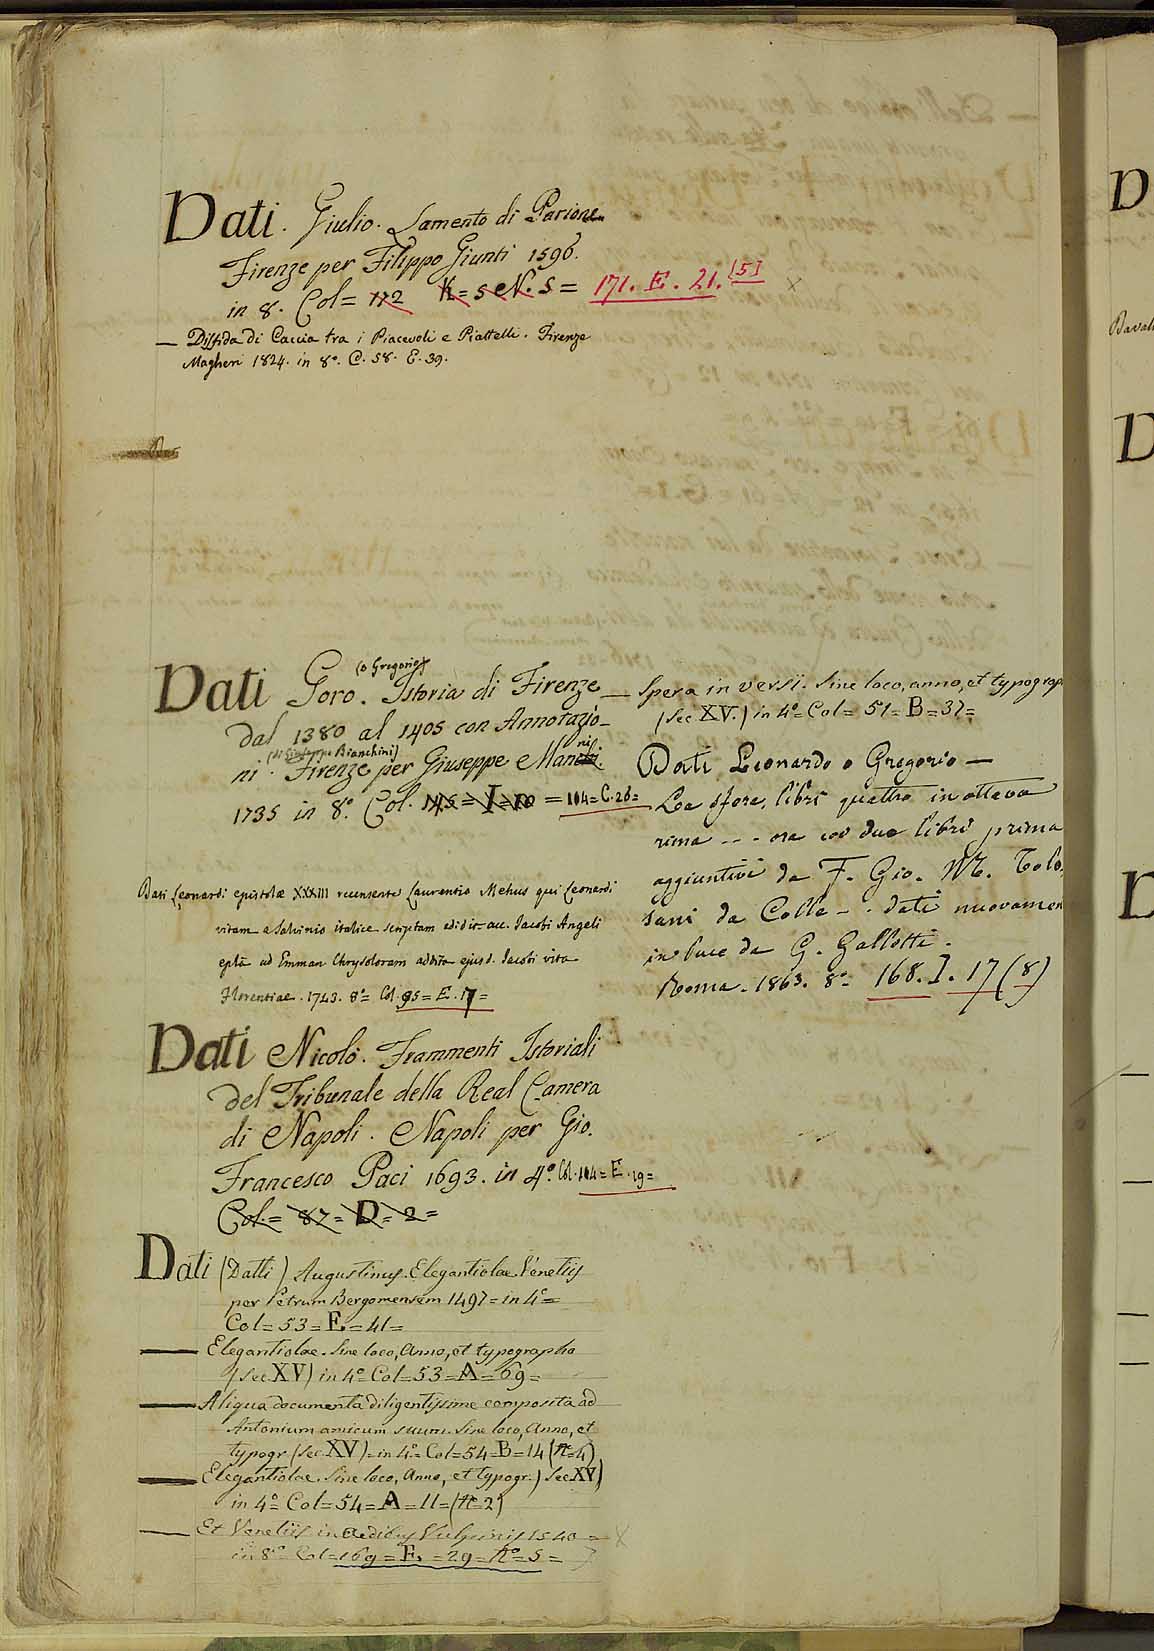 Dati. Giulio. Lamento di Parione
Firenze per Filippo Giunti 1596.
in 8. Col= 112 K= 5 e N. 5 = 171. E. 21. [5]
— Disfida di Caccia tra i Piacevoli e Piattelli. Firenze
Magheri 1824. in 8º. C. 58. E. 39.
Dati Goro. (o Gregorio) Istoria di Firenze
dal 1380 al 1405 con Annotazio-
ni. (di Giuseppe Bianchini) Firenze per Giuseppe e Manni.
1735 in 8º. Col. = I = 10 = 104= C. 26=
Dati Leonardi epistolæ XXXIII recensente Laurentio Mehus qui Leonardi
vitam a Salvinio italice scriptam edidit acc. Jacobi Angeli
eptã ad Emman Chrysoloram addita ejusd. Jacobi vita
Florentiae. 1743. 8º= Col. 95= E. 17=
Dati Nicolò. Frammenti Istoriali
del Tribunale della Real Camera
di Napoli. Napoli per Gio.
Francesco Paci 1693. in 4º. Col. 104= E. 19=
Col.= 87= D= 2=
Dati (Datti) Augustinus. Elegantiolae. Venetiis
per Petrum Bergomensem 1497= in 4º=
Col= 53= E= 41=
— Elegantiolae. Sine loco, Anno, et typographo
(sec XV) in 4º= Col= 53= A= 69=
— Aliqua documenta diligentissime composita ad
Antonium amicum suum. Sine loco, Anno, et
typogr (sec XV)= in 4º= Col= 54= B= 14 (nº=4)
— Elegantiolae. Sine loco, Anno, et typogr.) Sec XV)
in 4º= Col= 54= A= 11= (nº 2)
— Et Venetiis in aedibus Vulpinis 1540=
in 8º= Col= 169= E= 29= nº= 5=
— Spera in versi. Sine loco, anno, et typograp
(sec XV.) in 4º= Col= 51= B= 37=
Dati Leonardo o Gregorio —
La sfera, libri quattro in ottava
rima - - - ora coi due libri prima
aggiuntivi da F. Gio. M. Tolo
sani da Colle - . dati nuovamen
in luce da G. Galletti.
Roma. 1863. 8º= 168. I. 17 (8)